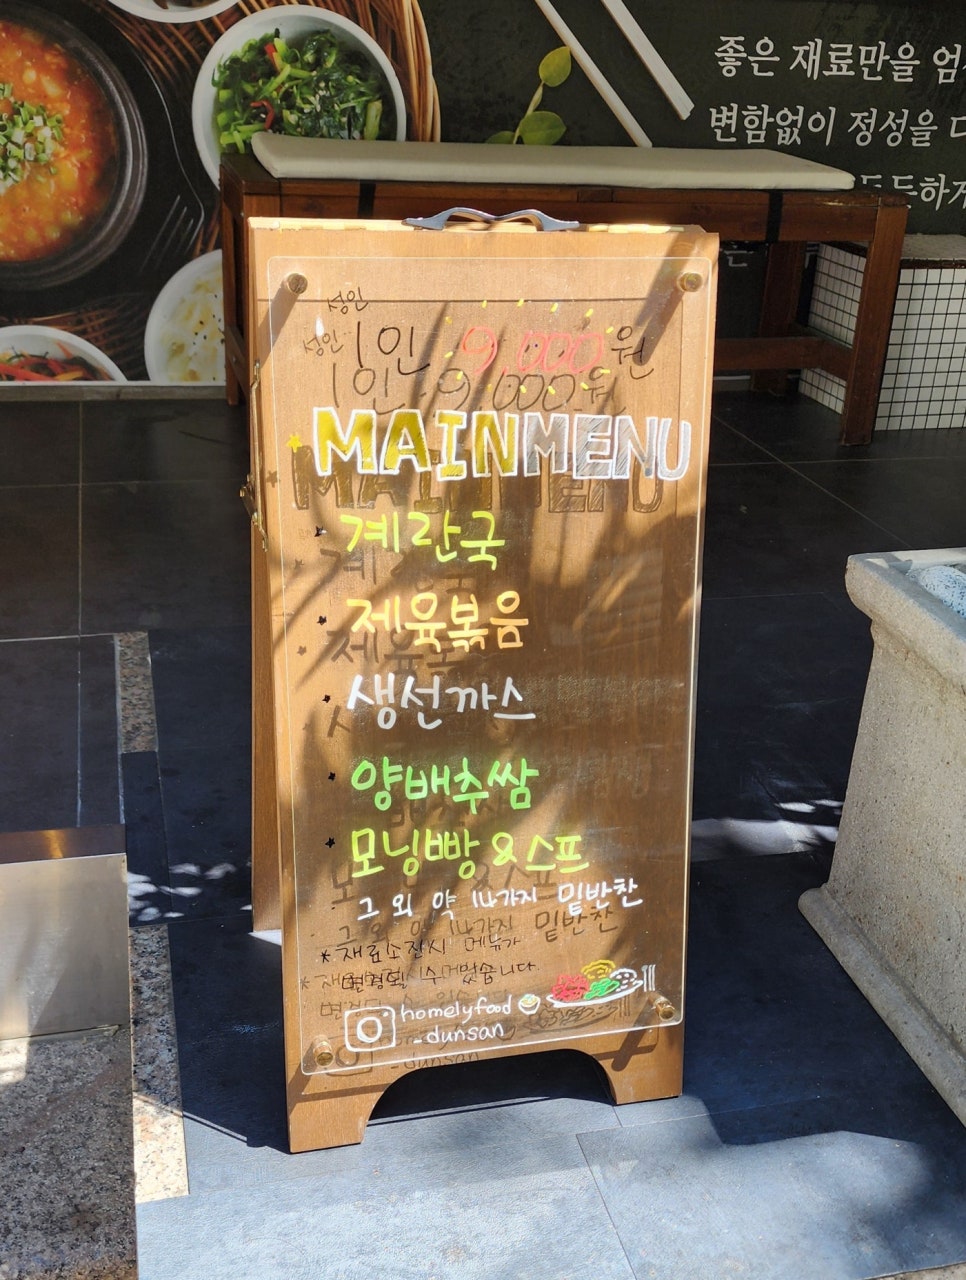 좋은 재료만을
변함없이 정성을
성인 1인 9,000원
MAINMENU
계란국
제육볶음
생선까스
양배추쌈
모닝빵&스프
그 외 약 14가지 밑반찬
*재료소진시 메뉴가
변경될 수 있습니다.
homelyfood
_dunsan